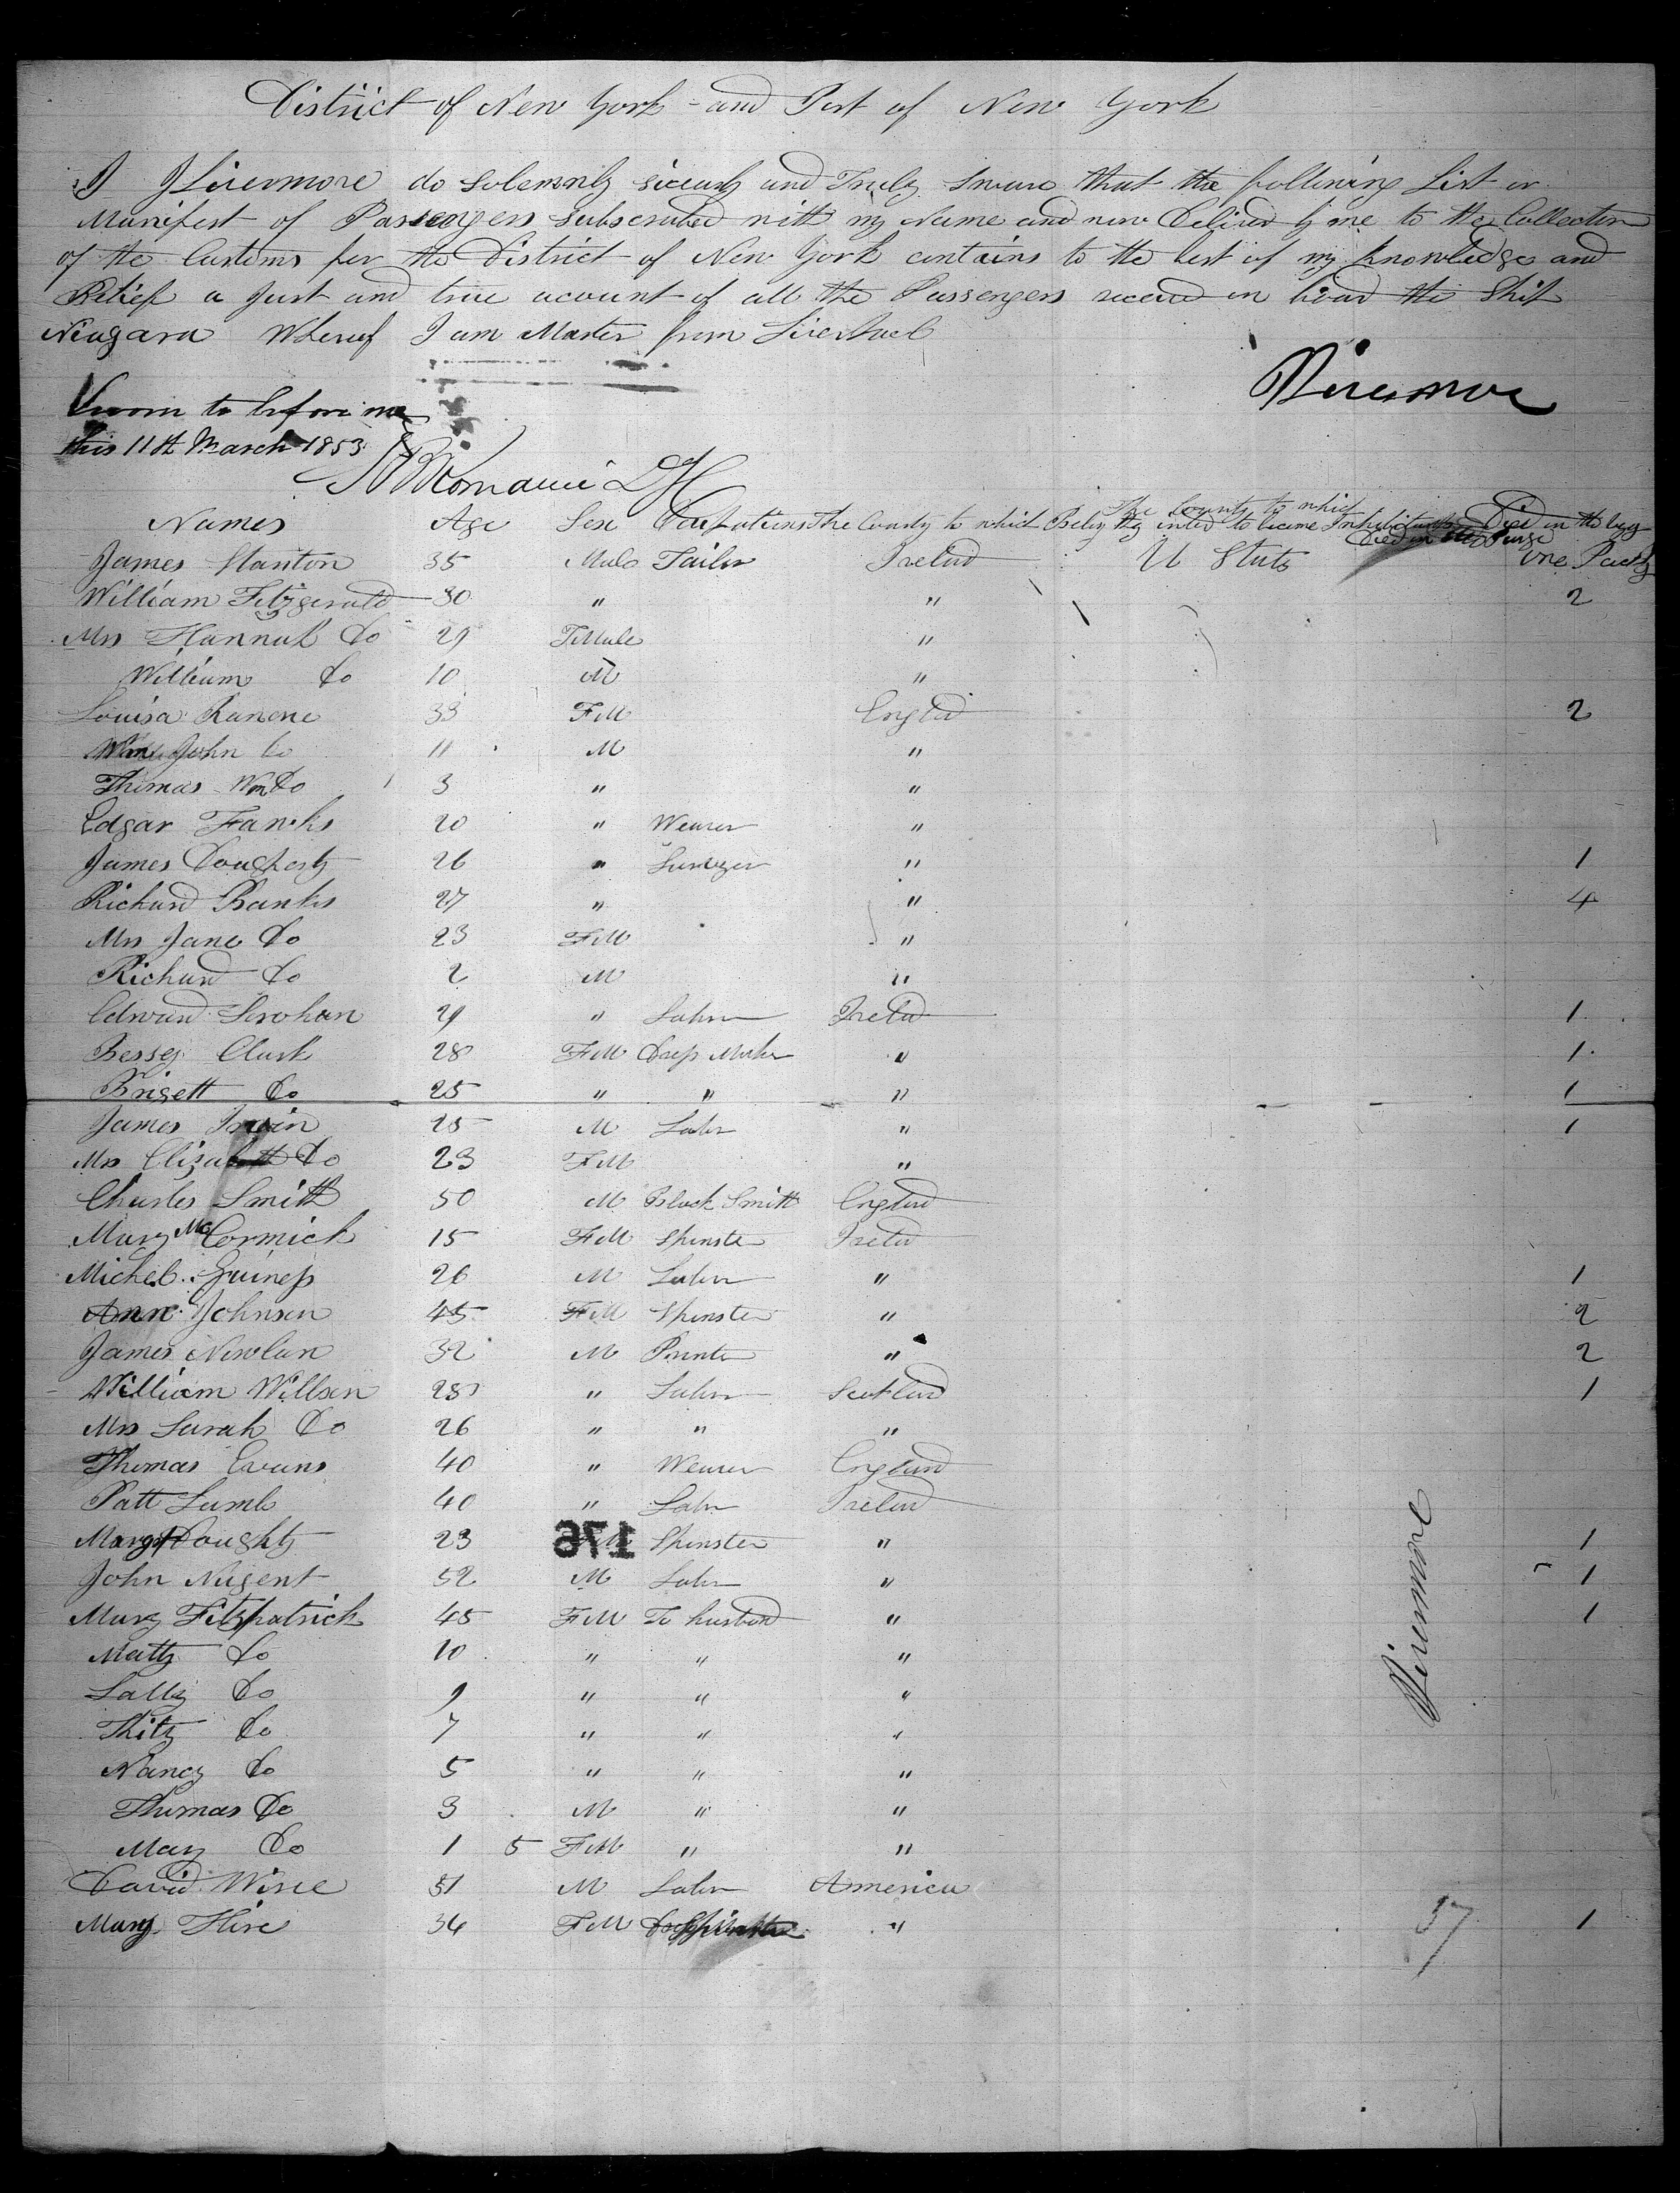 District of New York and Port of New York
I J Livermore do Solemnly sicearly and Truly Sware that the following List or
Manifest of Passengers subscrabed with my Name and now Delived by me to the Collector
of the Customs for the District of New York contains to the best of my Knowledge and
Belief a Just and true acount of all the Passengers receved on board the Ship
Niagara Whereof I am Master from Liverpool
Livermore
Sworn to before me
this 11th March 1853
Names Age Sex Occupations The County to which Belong The County to which they inted to become Inhabitants Died on the
James Stanton 35 Male Tailor Ireland U Stats one
William Fitzgerald 30 " " 2
Mrs Hannah Do 29 FMale "
William Do 10 M "
Louisa 33 FM England 2
John Do 11 M "
Thomas Wm Do 3 " "
Edgar 20 " Weaver "
James Dougherty 26 " "  1
Richard Banks 27 " " 4
Mrs Jane Do 23 FM "
Richard Do 2 M "
Edward 29 " Labr Ireland 1
Bessy Clark 28 FM Dress Maker " 1
Brigett Do 25 " " " 1
James Irwin 25 M Labr " 1
Mrs Elizabeth Do 23 FM "
Charles Smith 50 M Black Smith England
Mary McCormick 15 FM Spinster Ireland
Michel Guiness 26 M Labr " 1
Ann Johnson 45 FM Spinster " 2
James Newlan 32 M Printer " 2
William Willson 28 " Labr Scotland 1
Mrs Sarah Do 26 " " "
Thomas Evans 40 " Weaver England
Patt Lamb 40 " Labr Ireland
Margt Doughty 23 FM Spinster " 1
176
John Nugent 52 M Labr " 1
Mary Fitzpatrick 45 FM To husband " 1
Matty Do 10 " " "
Sally Do 9 " " "
Kitty Do 7 " " "
Nancy Do 5 " " "
Thomas Do 3 M " "
Mary Do 1 5 FM " "
David Wise 31 M Labr America
Mary Hire 34 FM Spinster " 1
37
Livermore